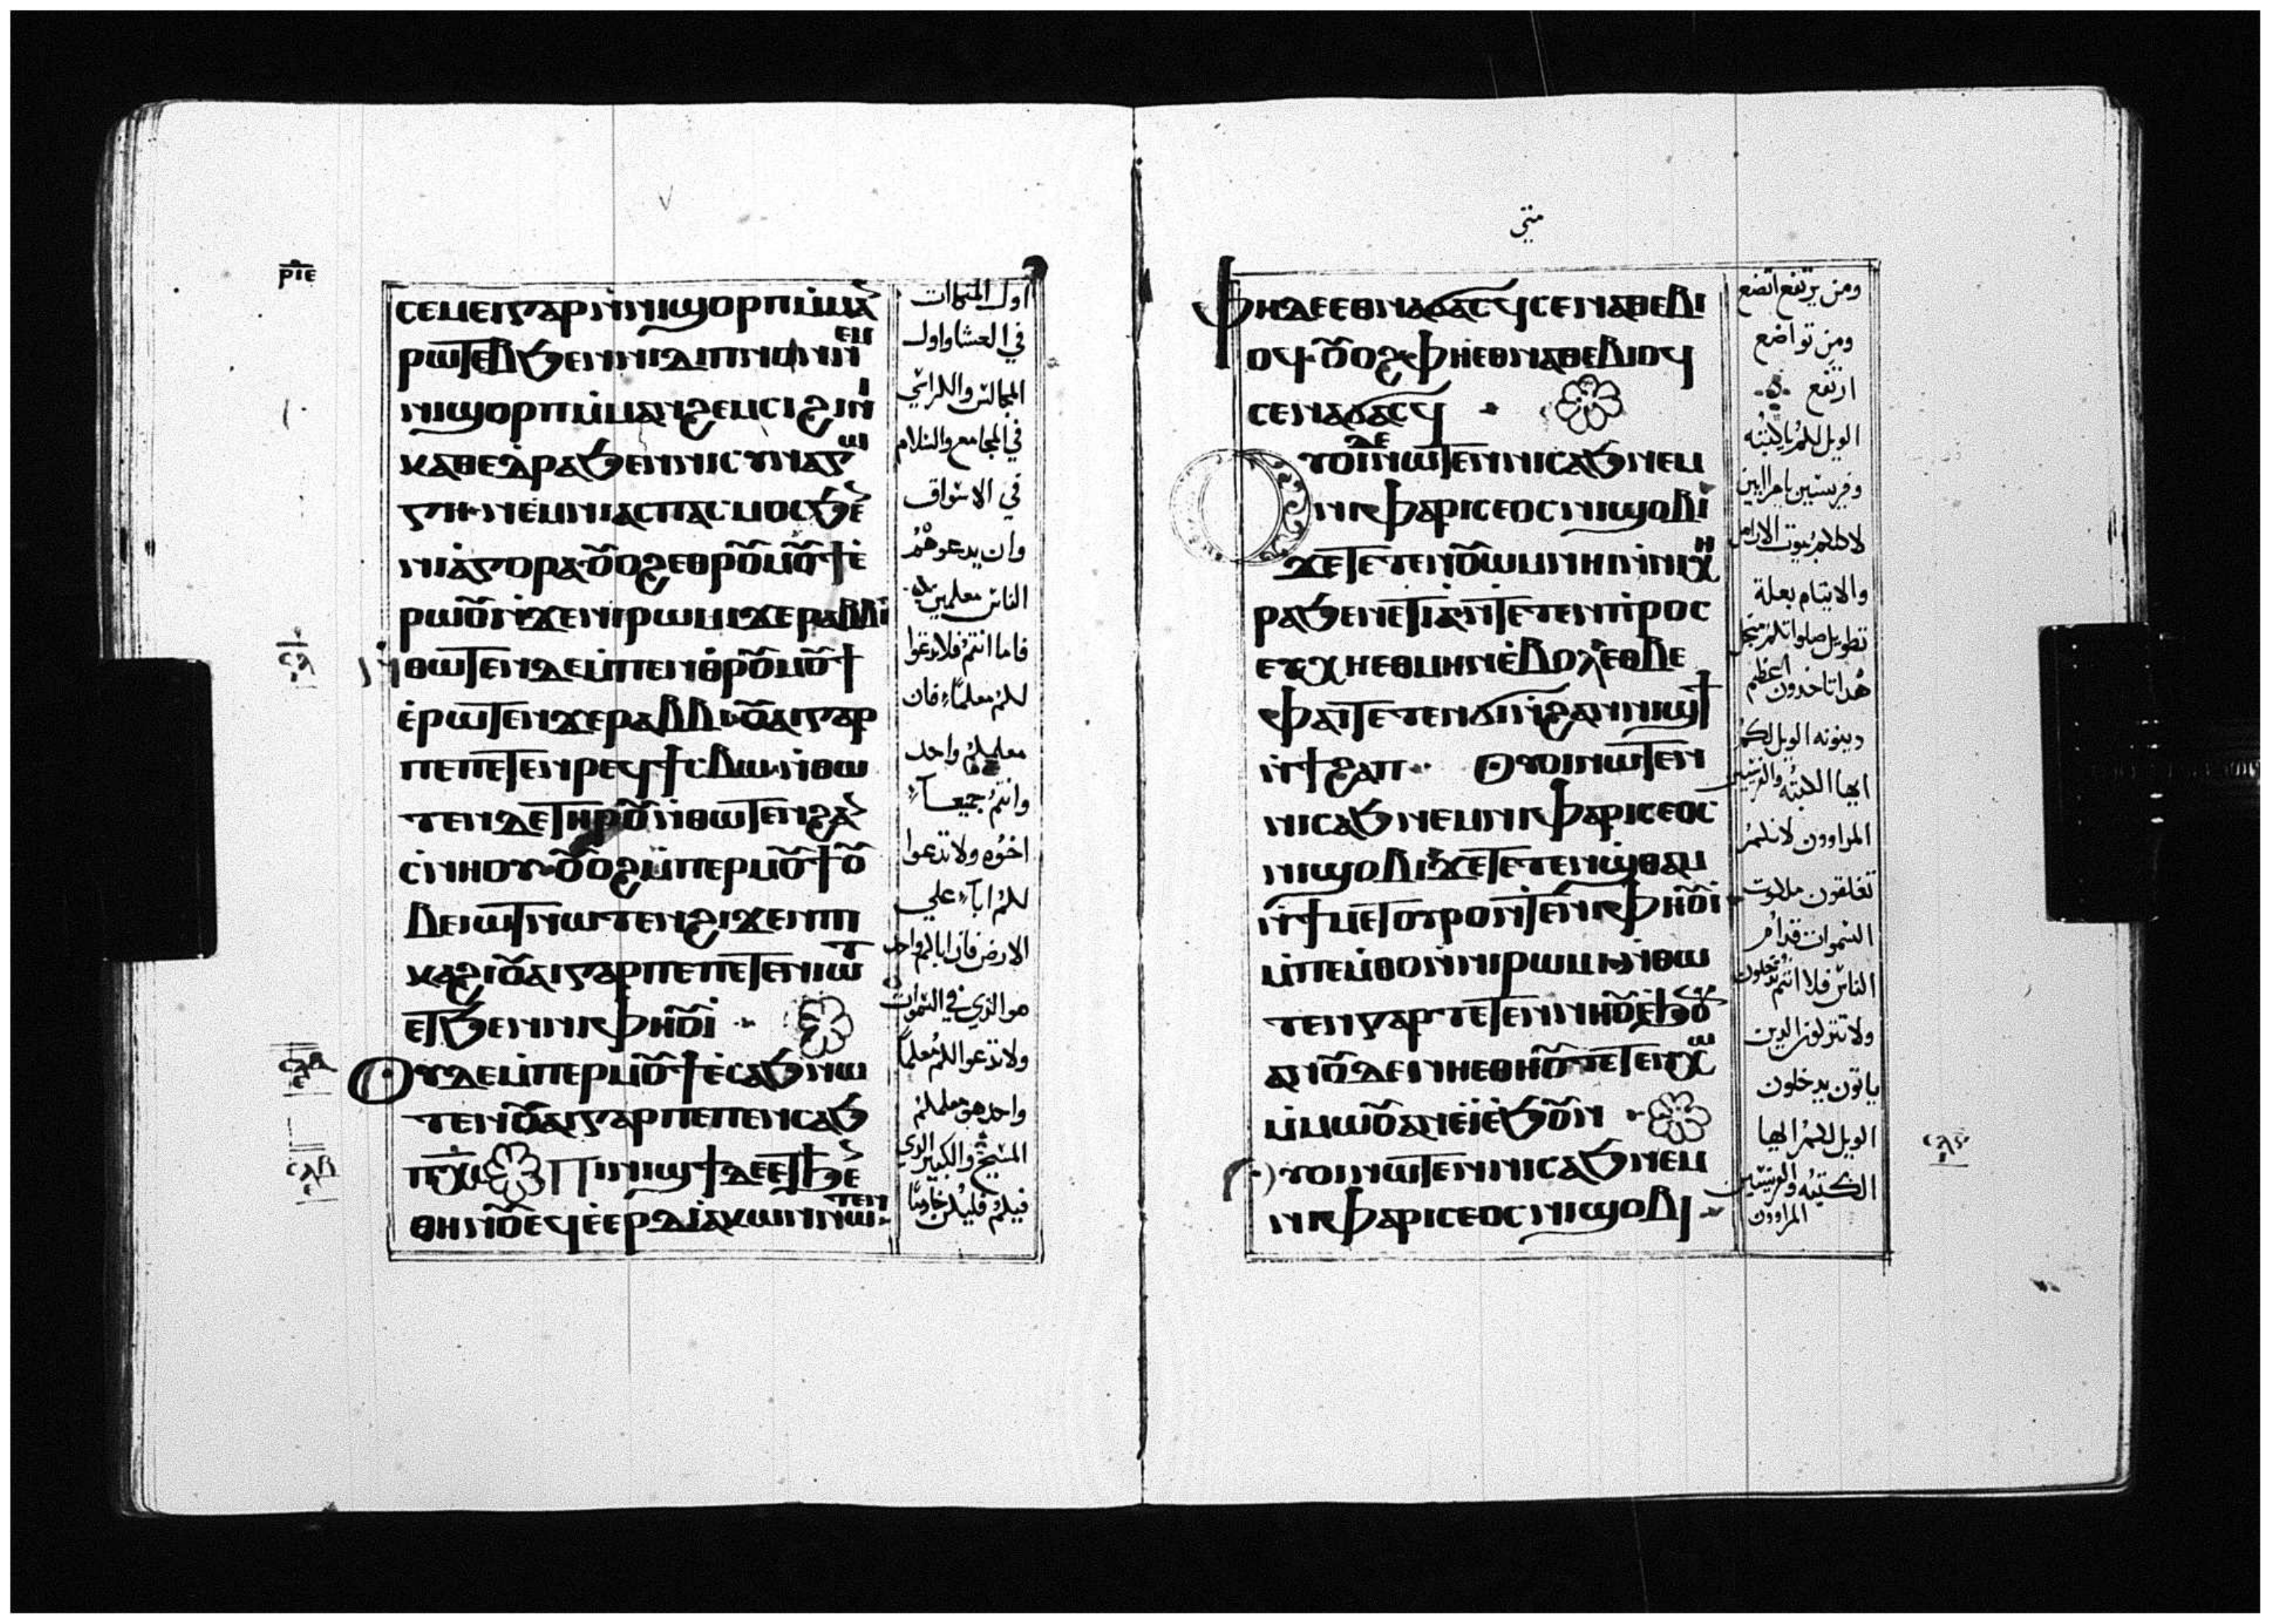 ⲣⲓⲉ
ⲥⲉⲙⲉⲓⲅⲁⲣⲛ̀ⲛⲓϣⲟⲣⲡⲙ̀ⲙⲁ
ⲣⲱⲧⲉⲃϧⲉⲛⲛⲓⲇⲓⲡⲛⲟⲛⲛⲉⲙ
ⲛⲓϣⲟⲣⲡⲙ̀ⲙⲁⲛϩⲉⲙⲥⲓϩⲓϯ
ⲕⲁⲑⲉⲇⲣⲁϧⲉⲛⲛⲓⲥⲩⲛⲁⲅⲱ
ⲅⲏ·ⲛⲉⲙⲛⲓⲁⲥⲡⲁⲥⲙⲟⲥϧⲉ
ⲛⲓⲁ̀ⲅⲟⲣⲁ·ⲟⲩⲟϩⲉⲑⲣⲟⲩⲙⲟⲩϯⲉ̀
ⲣⲱⲟⲩⲛ̀ϫⲉⲛⲓⲣⲱⲙⲓϫⲉⲣⲁⲃⲃⲓ
ⲛ̀ⲑⲱⲧⲉⲛⲇⲉⲙ̀ⲡⲉⲛⲑⲣⲟⲩⲙⲟⲩϯ
ⲉ̀ⲣⲱⲧⲉⲛϫⲉⲣⲁⲃⲃⲓ·ⲟⲩⲁⲓⲅⲁⲣ
ⲡⲉⲡⲉⲧⲉⲛⲣⲉϥϯⲥⲃⲱ·ⲛ̀ⲑⲱ
ⲧⲉⲛⲇⲉⲧⲏⲣⲟⲩⲛ̀ⲑⲱⲧⲉⲛϩⲁ
ⲥⲛⲏⲟⲩ·ⲟⲩⲟϩⲙ̀ⲡⲉⲣⲙⲟⲩϯⲟⲩ
ⲃⲉⲓⲱⲧⲛⲱⲧⲉⲛϩⲓϫⲉⲛⲡⲓ
ⲕⲁϩⲓⲟⲩⲁⲓⲅⲁⲣⲡⲉⲡⲉⲧⲉⲛⲓⲱⲧ
ⲉⲧϧⲉⲛⲛⲓⲫⲏⲟⲩⲓ̀
ⲟⲩⲇⲉⲙ̀ⲡⲉⲣⲙⲟⲩϯⲉ̀ⲥⲁϧⲛⲱ
ⲧⲉⲛⲟⲩⲁⲓⲅⲁⲣⲡⲉⲡⲉⲛⲥⲁϧ
ⲡⲭ̅ⲥ̅ ⲡⲓⲛⲓϣϯⲇⲉⲉⲧϧⲉ
ⲑⲏⲛⲟⲩⲉϥⲉ̀ⲉⲣⲇⲓⲁⲕⲱⲛⲛⲱⲧⲉⲛ
اول المتكاات
في العشا واول
المجالس والكراسي
في المجامع والسلام
في الاسواق
وان يدعوهم
الناس معلمين
فاما انتم فلا تدعوا
لكم معلماً فان
معلمكم واحد
وانتم جميعاً
اخوه ولا تدعوا
لكم اباً علي
الارض فان اباكم واحد
هو الذي في السموات
ولا تدعوا لكم معلماً
واحد هو معلمكم
المسيح والكبير الذي
فيكم فليكن خادماً
متى
ⲫⲏⲇⲉⲉⲑⲛⲁϭⲁⲥϥⲥⲉⲛⲁⲑⲉⲃⲓ
ⲟϥ·ⲟⲩⲟϩⲫⲏⲉⲑⲛⲁⲑⲉⲃⲓⲟϥ
ⲥⲉⲛⲁϭⲁⲥϥ
ⲟⲩⲟⲓⲇⲉⲛⲱⲧⲉⲛⲛⲓⲥⲁϧⲛⲉⲙ
ⲛⲓⲫⲁⲣⲓⲥⲉⲟⲥⲛⲓϣⲟⲃⲓ
ϫⲉⲧⲉⲧⲉⲛⲟⲩⲱⲙⲛⲛⲏⲓⲛ̀ⲛⲓⲭⲏ
ⲣⲁϧⲉⲛⲉⲧⲓⲁⲛ̀ⲧⲉⲧⲉⲛⲡⲣⲟⲥ
ⲉⲩⲭⲏⲉⲑⲙⲏⲛⲉ̀ⲃⲟⲗⲉⲑⲃⲉ
ⲫⲁⲓⲧⲉⲧⲉⲛϭⲓⲛ̀ϩⲁⲛⲛⲓϣϯ
ⲛ̀ϯϩⲁⲡ ⲟⲩⲟⲓⲛⲱⲧⲉⲛ
ⲛⲓⲥⲁϧⲛⲉⲙⲛⲓⲫⲁⲣⲓⲥⲉⲟⲥ
ⲛⲓϣⲟⲃⲓϫⲉⲧⲉⲧⲉⲛϣⲑⲁⲙ
ⲛ̀ϯⲙⲉⲧⲟⲩⲣⲟⲛ̀ⲧⲉⲛⲓⲫⲏⲟⲩⲓ̀
ⲙ̀ⲡⲉⲙ̀ⲑⲟⲛ̀ⲛⲓⲣⲱⲙⲓ·ⲛ̀ⲑⲱ
ⲧⲉⲛⲅⲁⲣⲧⲉⲧⲉⲛⲛⲏⲟⲩⲉ̀ϧⲟⲩⲛ
ⲁⲛⲟⲩⲇⲉⲛⲏⲉⲑⲛⲏⲟⲩⲧⲉⲧⲉⲛⲭⲱ
ⲙ̀ⲙⲱⲟⲩⲁⲛⲉ̀ⲓ̀ⲉ̀ϧⲟⲩⲛ
ⲟⲩⲟⲓⲛⲱⲧⲉⲛⲛⲓⲥⲁϧⲛⲉⲙ
ⲛⲓⲫⲁⲣⲓⲥⲉⲟⲥⲛⲓϣⲟⲃⲓ
ومن يرتفع اتضع
ومن تواضع
ارتفع
الويل لكم يا كتبه
وفريسيين يا مراايين
لاكلكم بيوت الارامل
والايتام بعلة
تطويل صلواتكم
هدا تاخدون اعظم
دينونه الويل لكم
ايها الكتبه والفريسيين
المراوون لانكم
تغلقون ملكوت
السموات قدام
الناس فلا انتم تدخلون
ولا تتركون الدين
ياتون يدخلون
الويل لكم ايها
الكتبه والفريسيين
المراوون